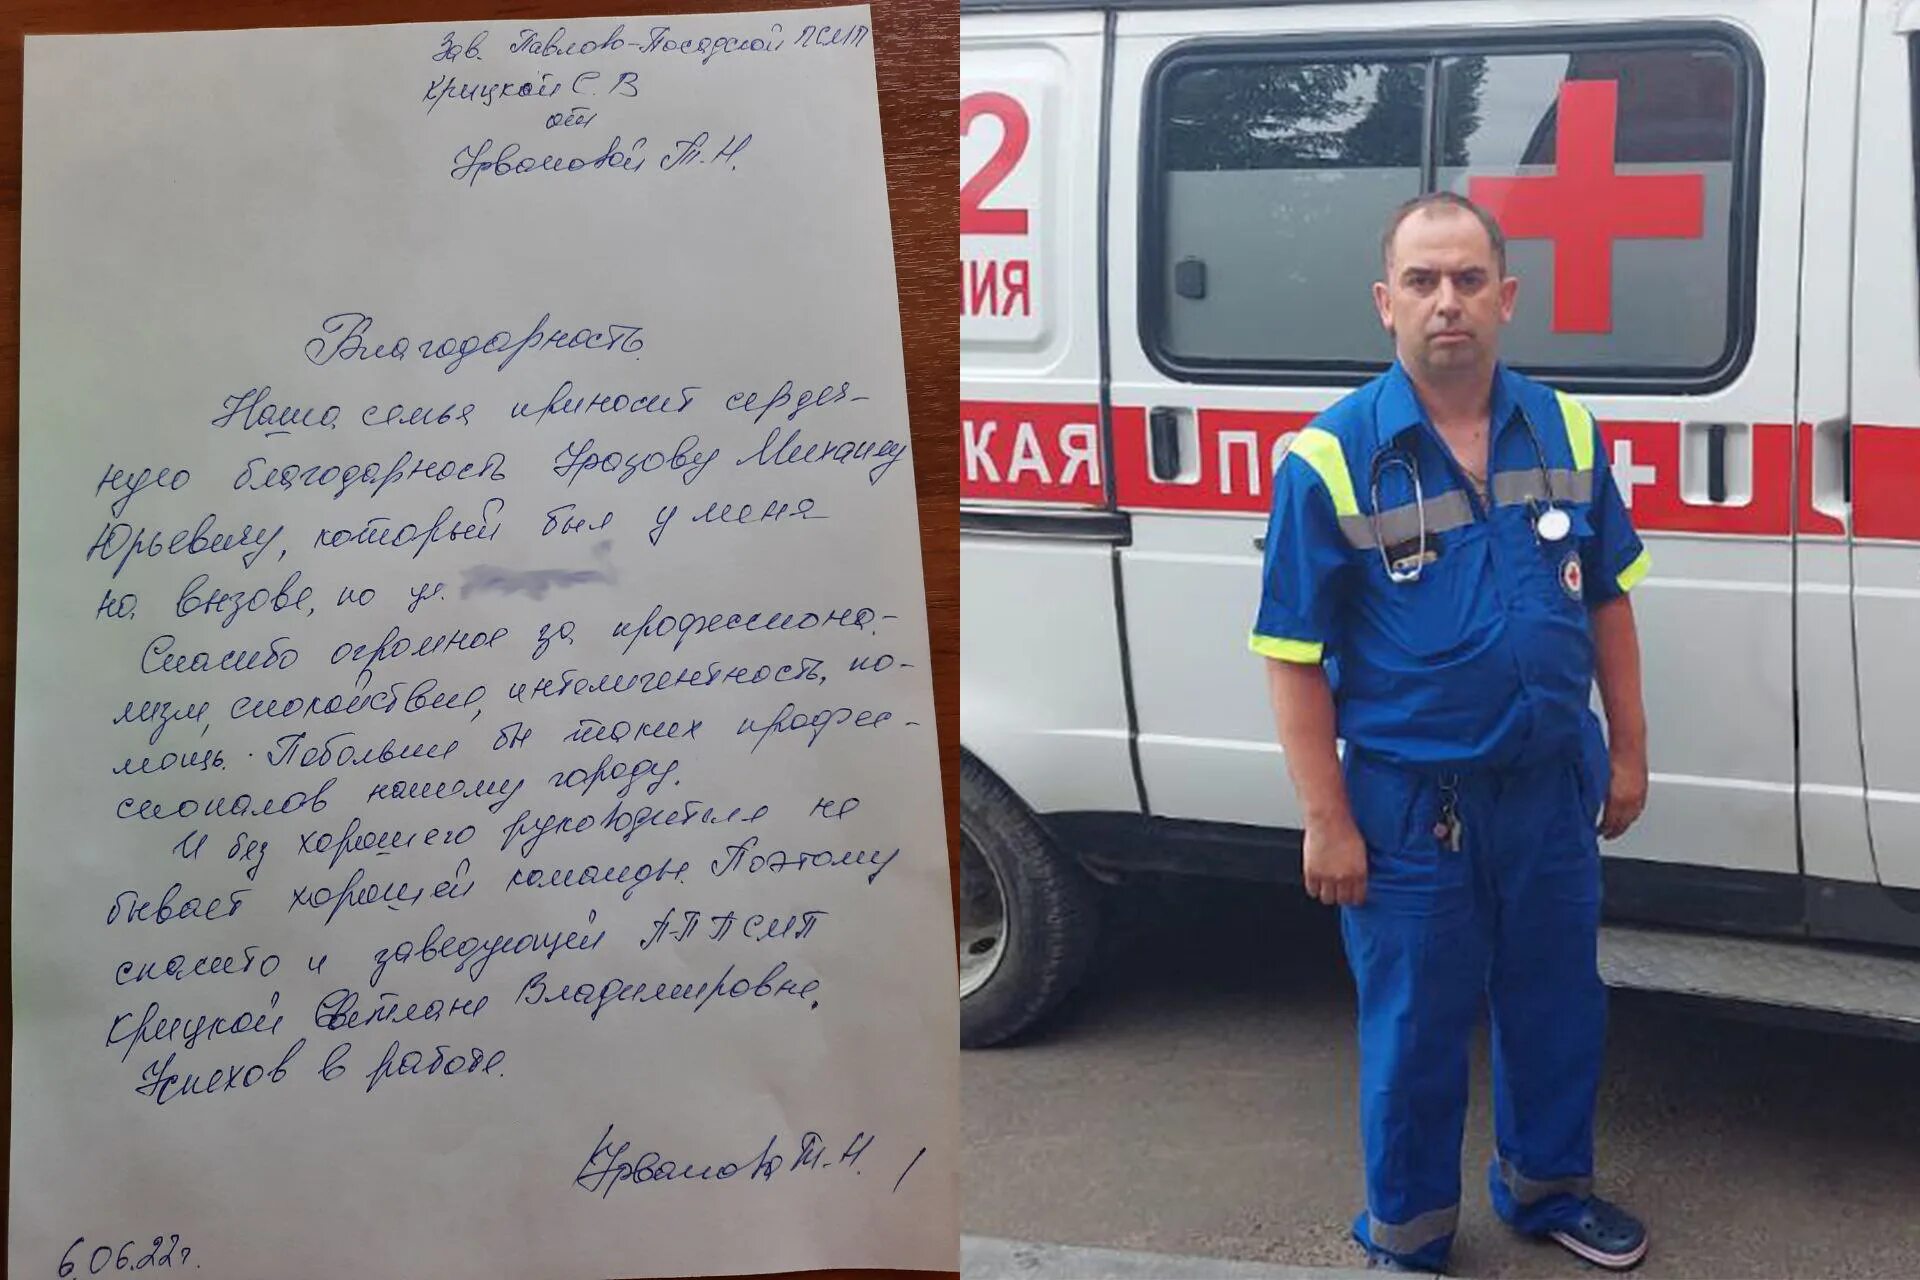 Зав. Павлово-Посадской ПСМП
Крицкой С. В
от
Урвановой Т. Н.
Благодарность.
Наша семья приносит сердеч-
ную благодарность Уразову Михаилу
Юрьевичу, который был у меня
на вызове, по ул.
Спасибо огромное за профессиона-
лизм, спокойствие, интелигентность, по-
мощь. Побольше бы таких профес-
сионалов нашему городу.
И без хорошего руководителя не
бывает хорошей команды. Поэтому
спасибо и заведующей П-П ПСМП
Крицкой Светлане Владимировне.
Успехов в работе.
Урванова Т. Н.
6.06.22г.
2
ИЯ
КАЯ ПО